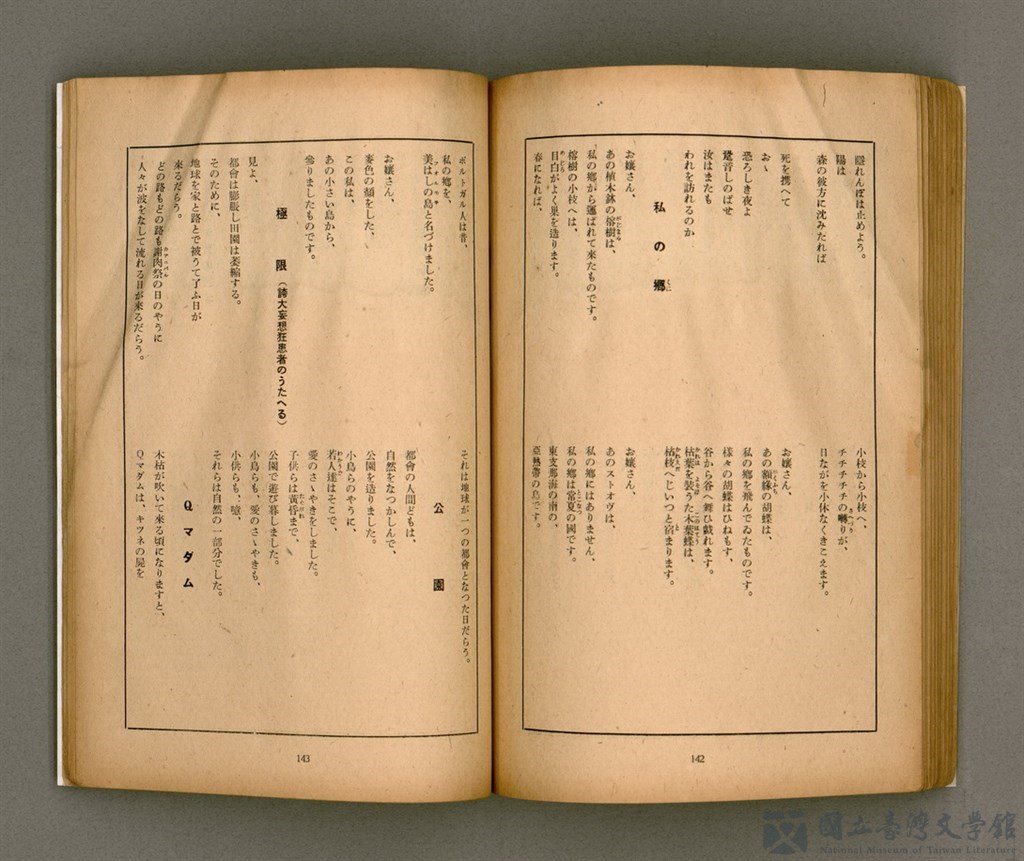 隱れんぼは止めよう。
陽は
森の彼方に沈みたれば
死を携へて
おゝ
恐ろしき夜よ
跫音しのばせ
汝はまたも
われを訪れるのか
私の鄕
くに
お孃さん、
あの植木鉢の榕樹は、
がじまる
私の鄕から運ばれて來たものです。
榕樹の小枝へは、
目白がよく巢を造ります。
めじろ
春になれば、
小枝から小枝へ、
チチチチチの囀りが、
さへづり
日ながを小休なくきこえます。
お孃さん、
あの額緣の胡蝶は、
がくぶち
私の鄕を飛んでゐたものです。
樣々の胡蝶はひねもす、
谷から谷へ舞ひ戲れます。
枯葉を裝うた木葉蝶は、
かれは よそほ このはてふ
枯枝へじいつと宿まります。
かれえだ と
お孃さん、
あのストオヴは、
私の鄕にはありません、
私の鄕は常夏の國です。
とこなつ
東支那海の南の、
亞熱帶の島です。
142
ポルトガル人は昔、
私の鄕を、
美はしの島と名づけました。
フオルモサ
お孃さん、
麥色の顏をした、
この私は、
あの小さい島から、
參りましたものです。
極限(誇大妄想狂患者のうたへる)
見よ、
都會は膨脹し田園は萎縮する。
そのために、
地球を家と路とで被うて了ふ日が
來るだらう。
どの路もどの路も謝肉祭の日のやうに
カアニバル
人々が波をなして流れる日が來るだらう。
それは地球が一つの都會となつた日だらう。
公園
都會の人間どもは、
自然をなつかしんで、
公園を造りました。
小鳥らのやうに、
若人達はそこで、
わかうど
愛のさゝやきをしました。
子供らは黃昏まで、
たそがれ
公園で遊び暮しました。
小鳥らも、愛のさゝやきも、
小供らも、噓、
それらは自然の一部分でした。
Qマダム
木枯が吹いて來る頃になりますと、
Qマダムは、キツネの屍を
143
國立臺灣文學館
National Museum of Taiwan Literature